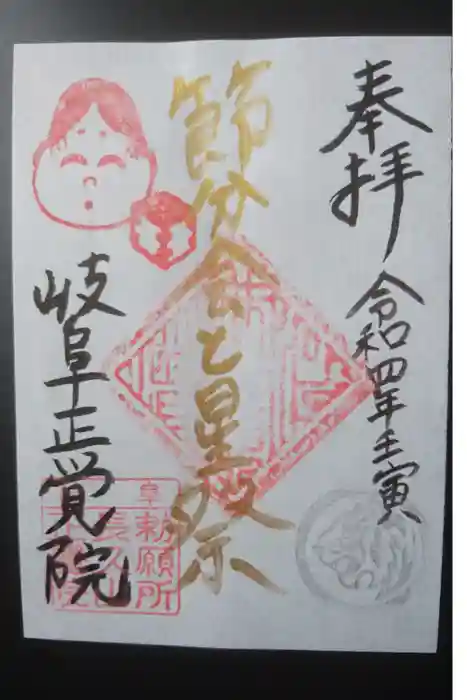 奉拝
令和四年壬寅
節分会と星祭
岐阜正覚院
勅願所